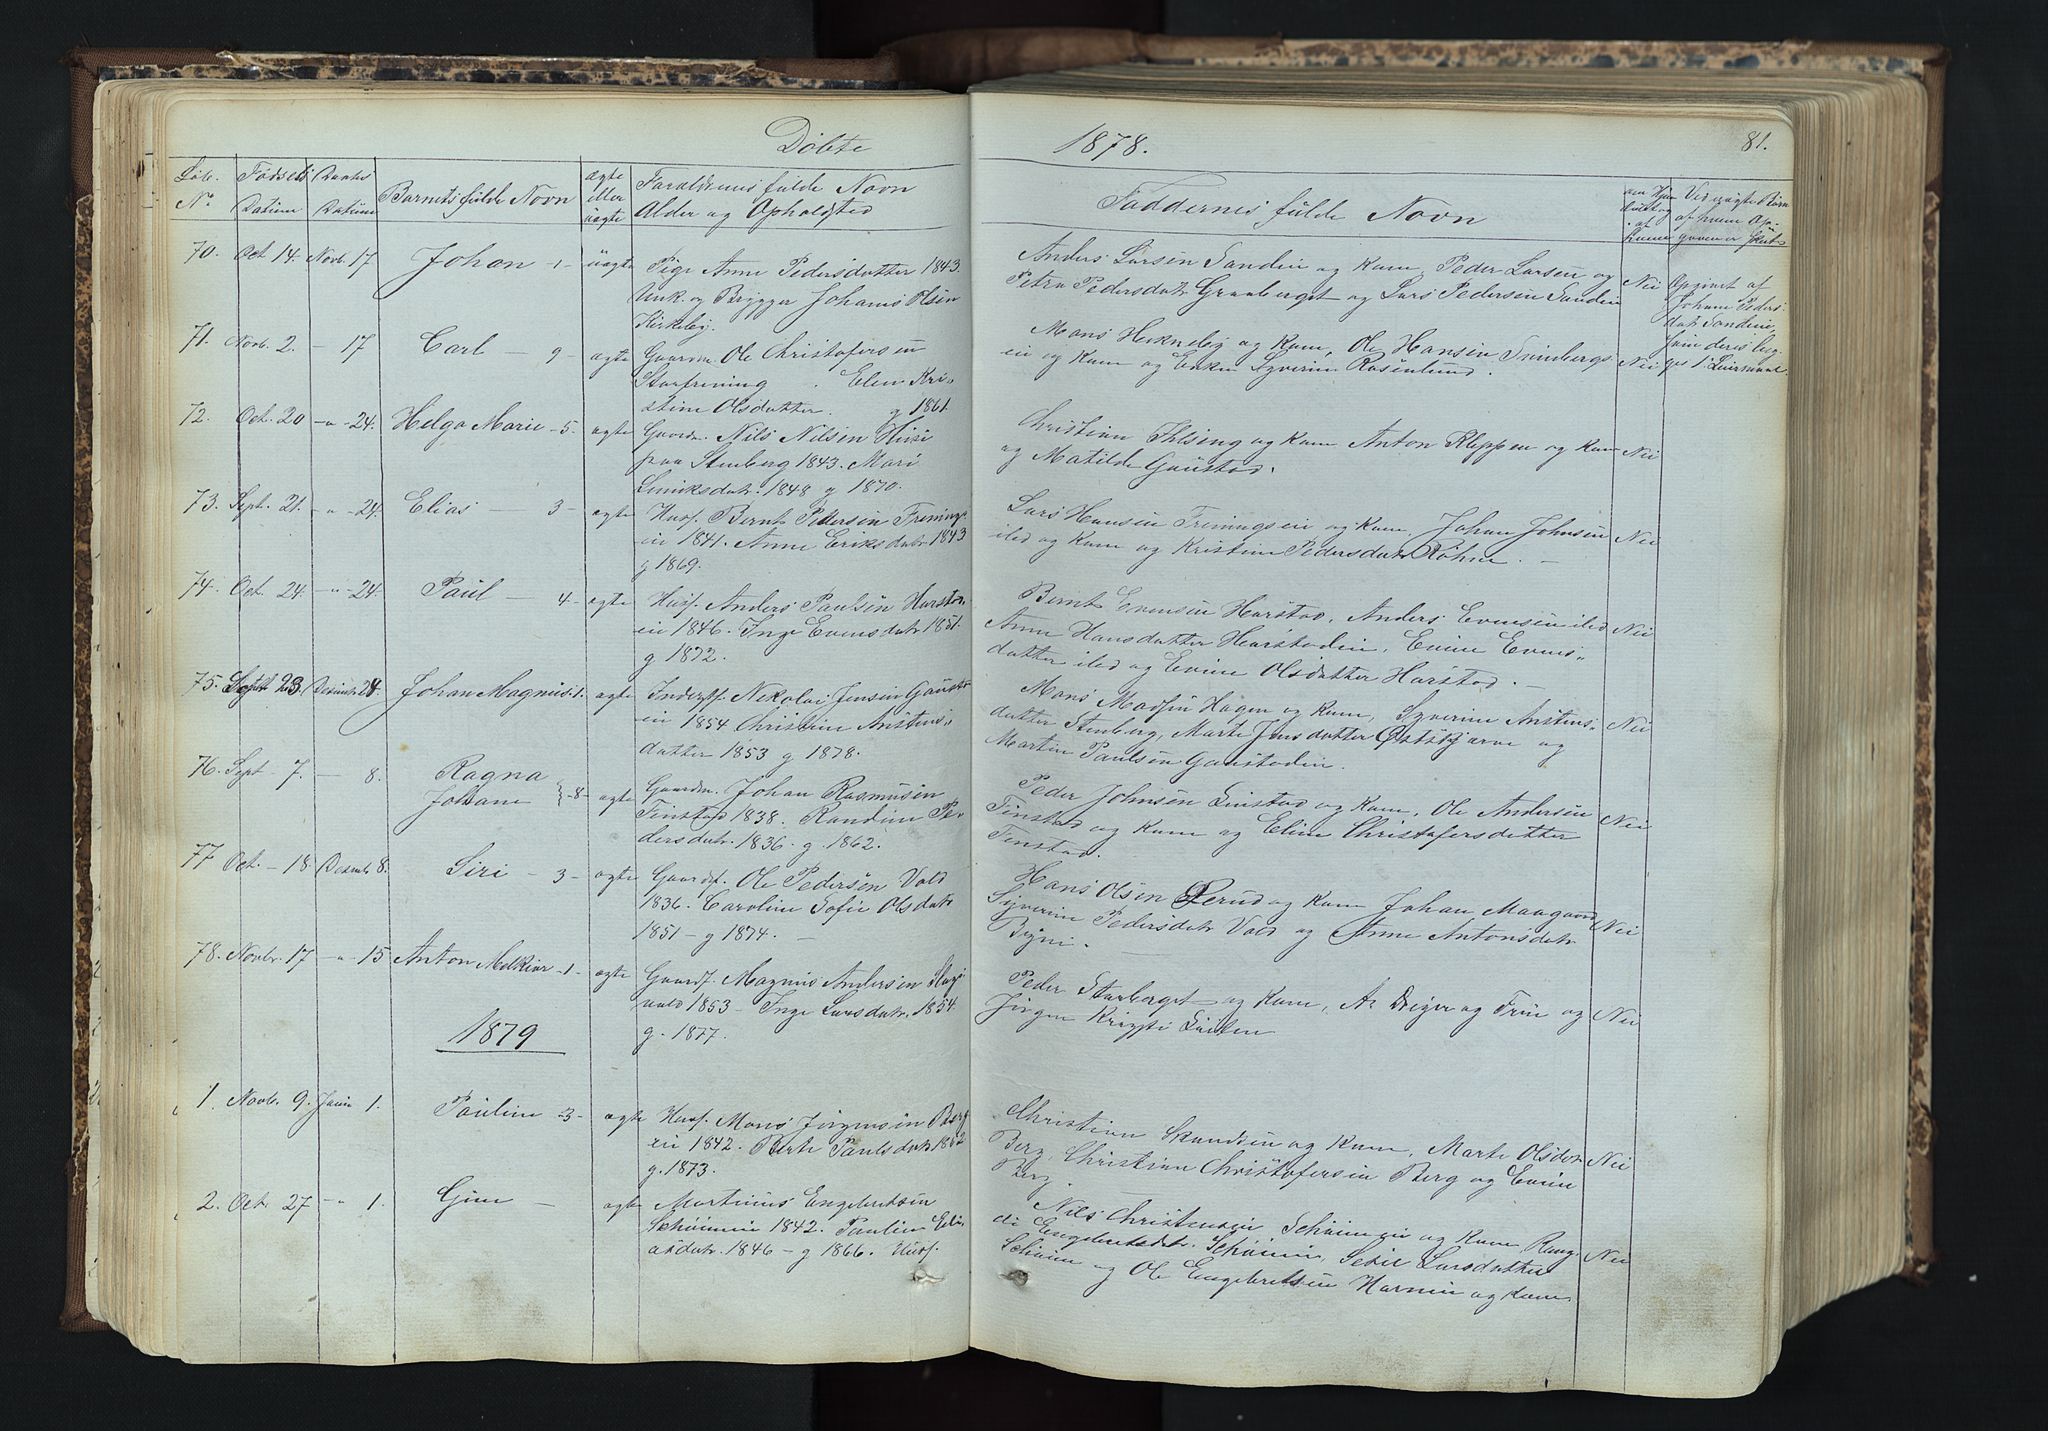 Döbte 1878. 81.
Löb. No Födsels Datum Daabs Datum Barnets fulde Navn ægte eller uægte Forældrenes fulde Navn Alder og Opholdsted
Faddernes fulde Navn
70. Oct 14. Novb. 17 Johan -1- uægte Pige Anne Pedersdatter 1843.
Unk. og Brygger Johannes Olsen
Kirkeby.
Anders Larsen Sandu og Kone, Peder Larsen og
Petra Pedersdatr Graaberget og Lars Pedersen Sanden Nei
Opgivet af
Johane Peders-
datr
71. Novb. 2. - 17 Carl - 9 - ægte Gaardm. Ole Christofersen
Storfrening. Elen Kri-
stine Olsdatter. g 1861
Mons Hekneby og Kone, Ole Hansen
og Kone og Enke Syverine Rosenlund. Nei
72. Oct. 20 -"- 24. Helga Marie -5- ægte Gaardm. Nils Nilsen
paa Stenberg 1843. Mari
datr. 1848 g 1870.
Christian Ihlsing og Kone Anton Kleppen og Kone
og Matilde Gaustad. Nei
73. Sept. 21. -"- 24. Elias - 3 - ægte Husf. Bernt Pedersen Frenings-
en 1841. Anne Eriksdatr 1843
g 1869.
Lars Hansen Freningseie og Kone, Johan Johnsen
ibd og Kone og Kristine Pedersdatr Röhne. - Nei
74. Oct. 24. -"- 24. Paul - 4 - ægte Husf. Anders Paulsen Harstad-
en 1846. Inge Evensdatr 1851.
g 1872.
Bernt Evensen Harstad, Anders Evensen ibd
Anne Hansdatter Harstadeie, Evine Evens-
datter ibd og Evine Olsdatter Harstad. - Nei
75. Septbr 23. 28. Johan Magnus -1- ægte Inderst. Nikolai Jensen Gaustad
en 1854 Christine Anstens-
datter 1853 g 1878.
Mons Madsen Hagen og Kone, Syverine Anstens-
datter Stenberg, Marte Jensdatter og
Martin Paulsen Gaustadeie. Nei
76. Sept - 7. - 8. Ragna
Johane } -8- ægte Gaardm. Johan Rasmusen
Finstad 1838. Randine Pe-
dersdatr. 1836 - g. 1862.
Peder Johnsen Linstad og Kone, Ole Andersen
Finstad og Kone og Eline Christofersdatter
Finstad. Nei
77 Oct. - 18 Decemb 8. Siri - 3 - ægte Gaardf. Ole Pedersen Vold
1836. Caroline Sofie Olsdatr
1851 - g 1874. -
Hans Olsen og Kone Johan Maagaard
Syverine Pedersdatr Vold og Anne Antonsdatr
Nei
78. Novbr. 17 -"- 15 Anton Melkior -1- ægte Gaardf. Magnus Andersen
vold 1853 - Inge Larsdatr. 1854.
g - 1877.
Peder Starberget og Kone, A. og Frue og
Jörgen Nei
1879
1. Novb. 9. Janu 1. Pauline - 3 - ægte Husf. Mons Jörgensen Berg-
en 1842. Berte Paulsdatr 1852
g. 1873.
Christian Skundsen og Kone, Marte Olsdatr
Berg, Christian Christofersen Berg og Evine
Berg. Nei
2. Oct. 27 -"- 1. - ægte Martinus Engebretsen
1842. Pauline Eli-
asdatr. 1846 - g 1866. Husf.
Nils Christensen og Kone, Rang-
di Engebretsdatr. Larsdatter
og Ole Engebretsen og Kone Nei